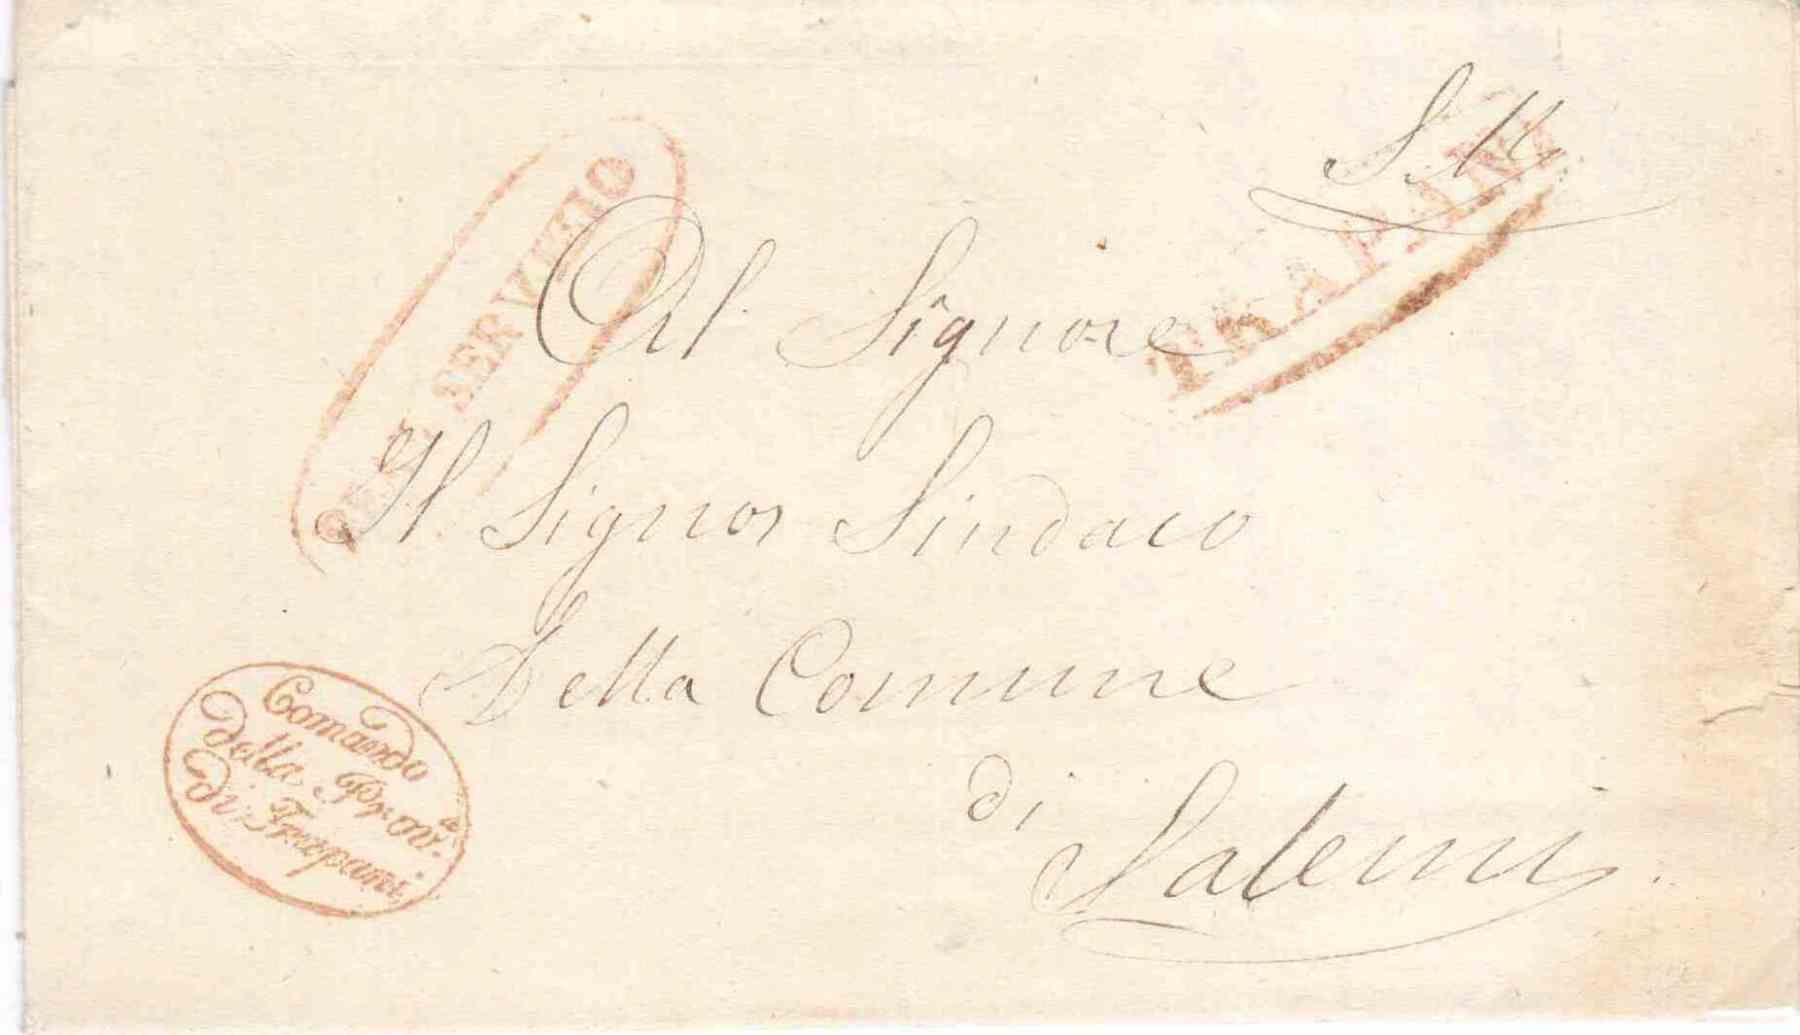 S. M.
TRAPANI
SERVIZIO
Al Signore
Il Signor Sindaco
Della Comune
di
Salemi
Comando
della Prov.a
di Trapani